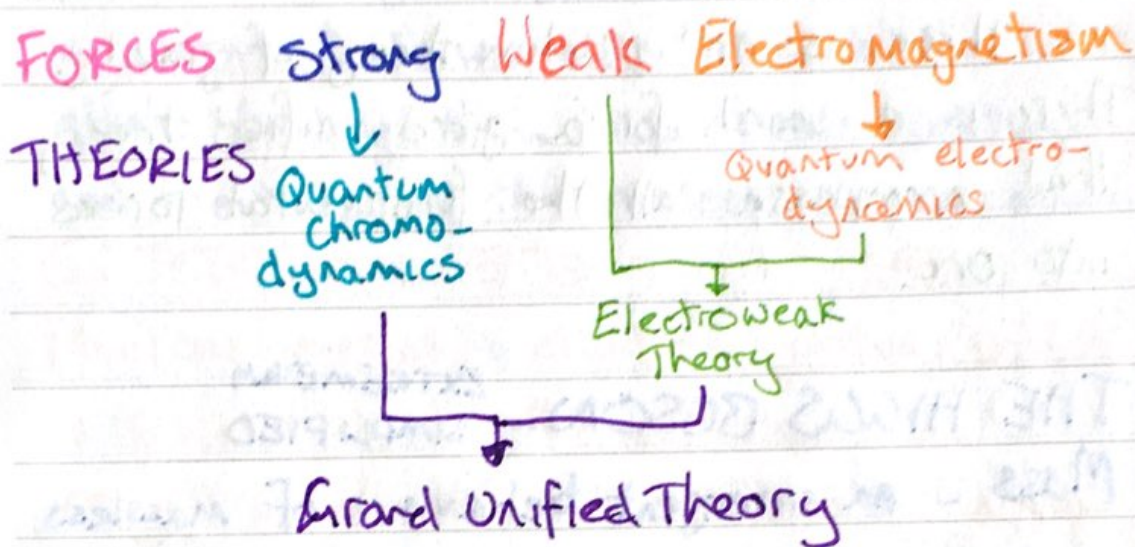 FORCES Strong Weak Electromagnetism
THEORIES
Quantum
chromo-
dynamics
Quantum electro-
dynamics
Electroweak
Theory
Grand Unified Theory